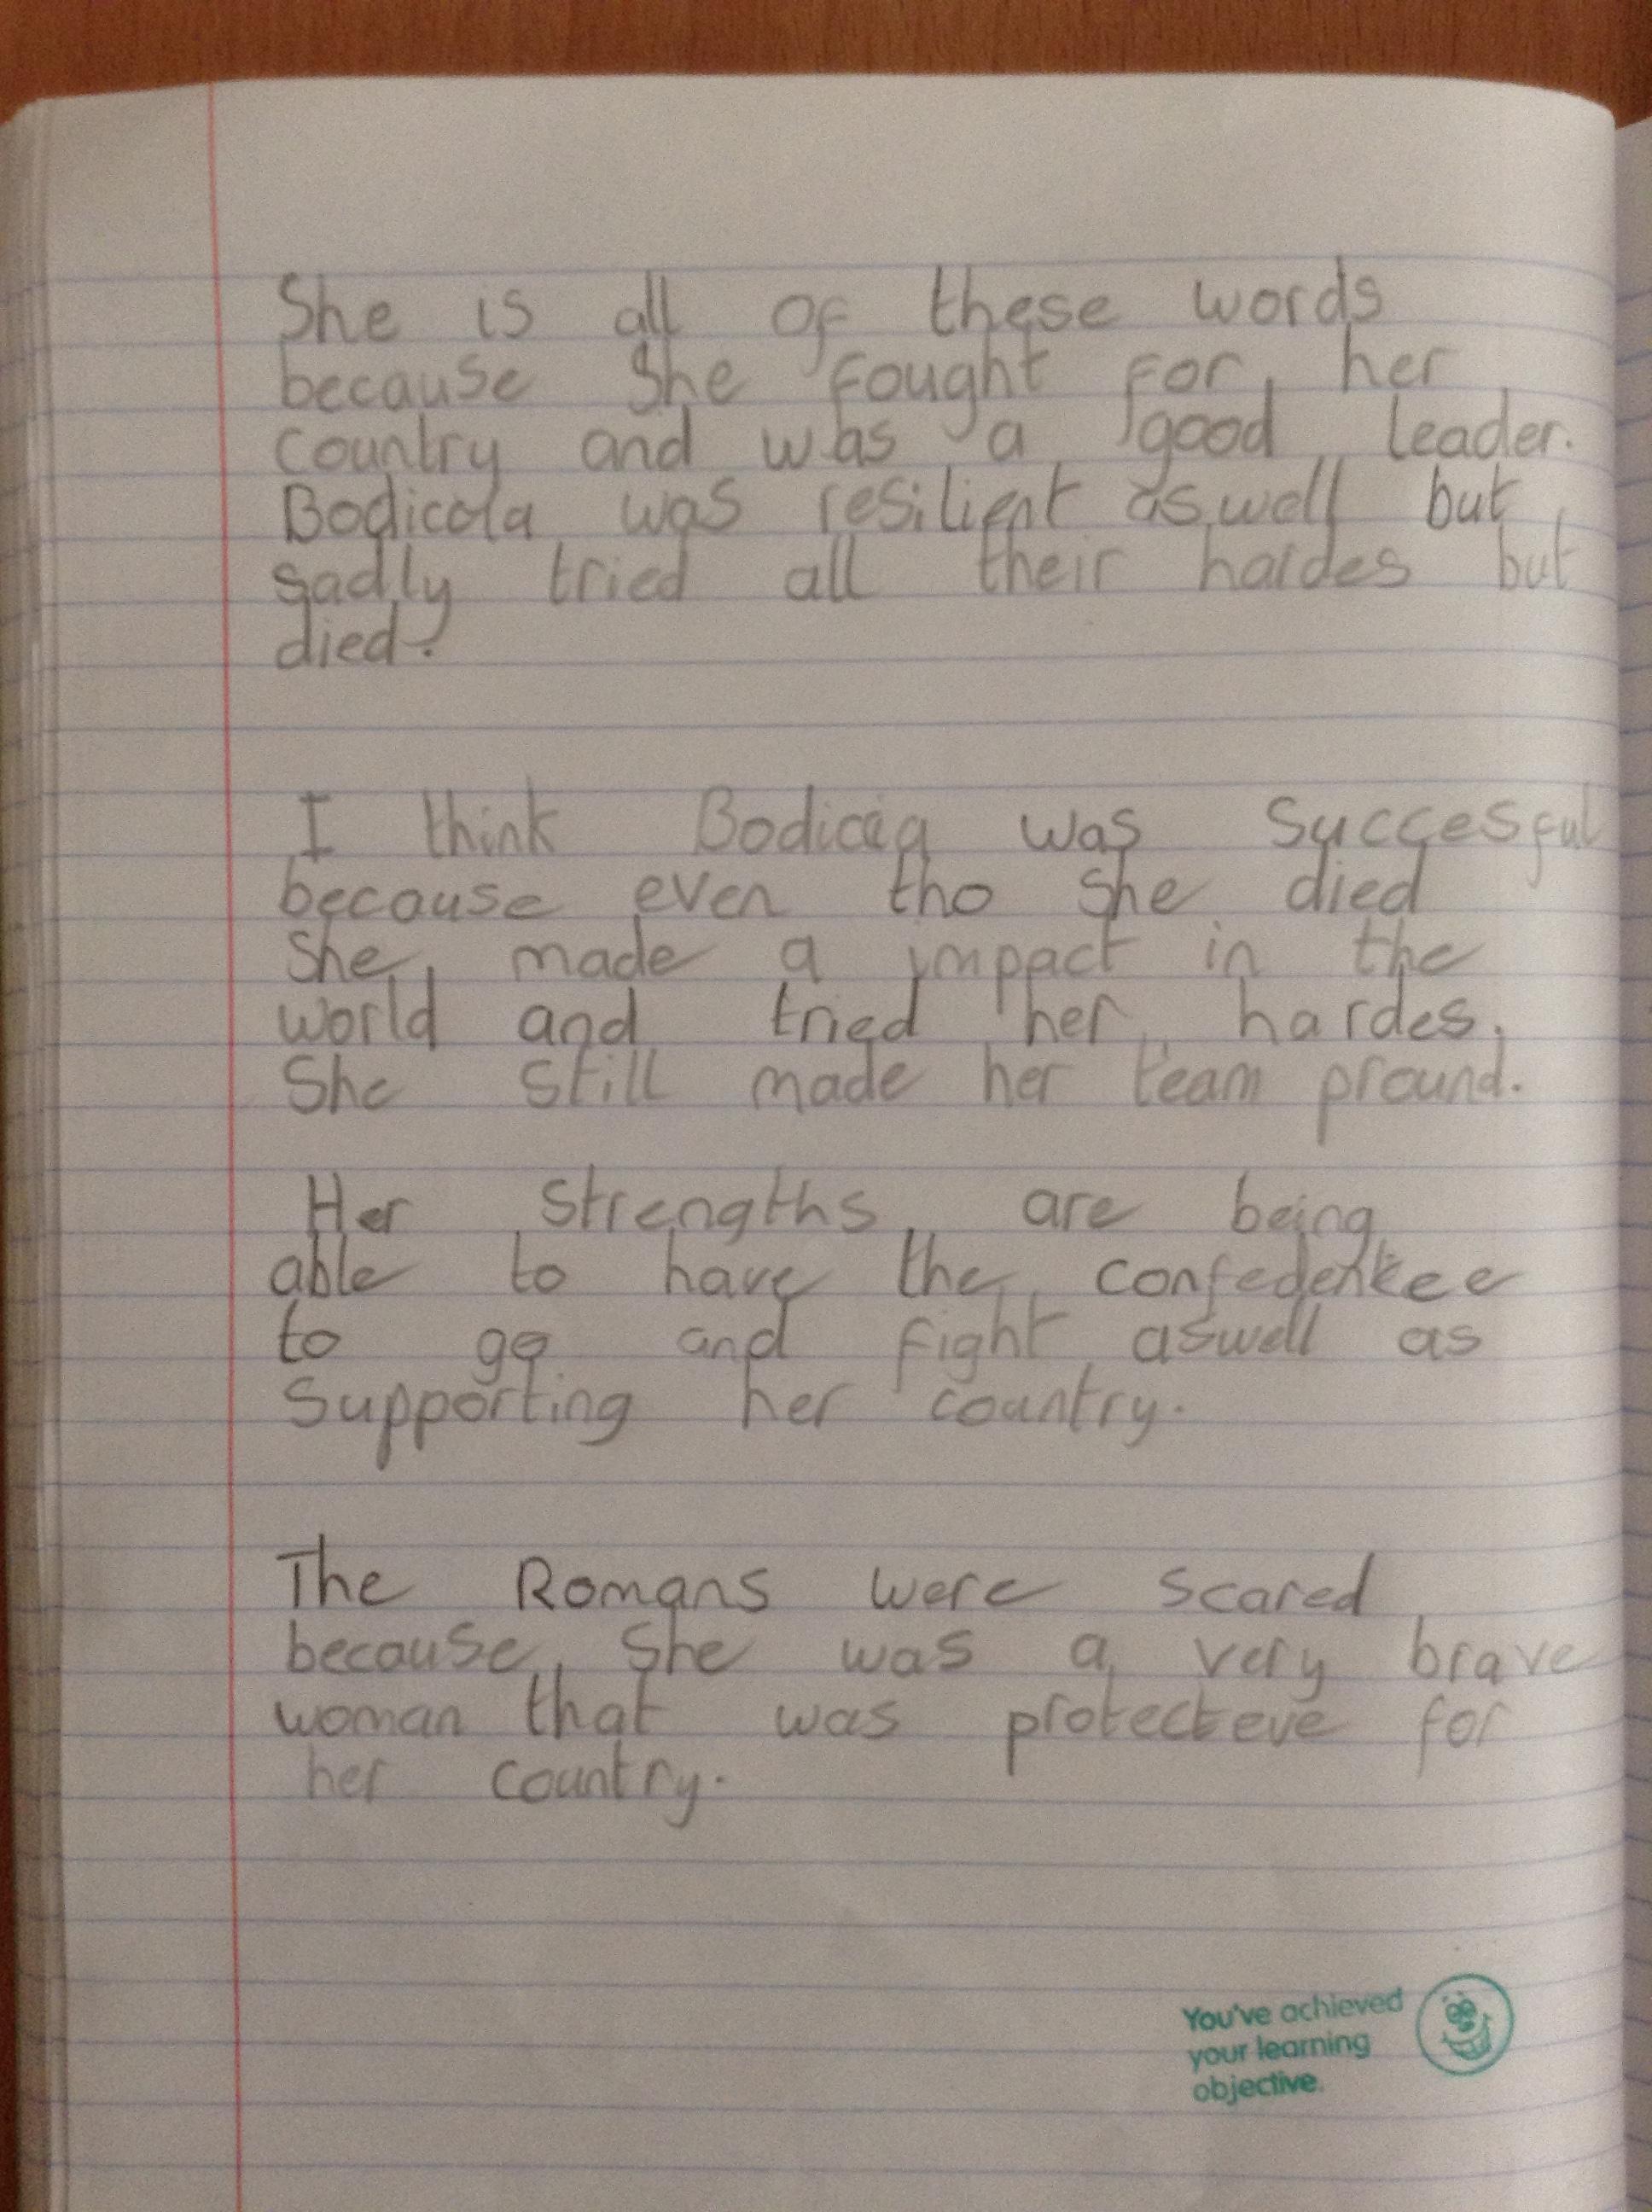 She is all of these words
because she fought for her
country and was a good leader.
Bodicola was resilient aswell but
sadly tried all their hardes but
died.
I think Bodicia was Succesful
because even tho she died
she made a impact in the
world and tried her hardes.
She still made her team pround.
Her strengths are being
able to have the confedenkee
to go and fight aswell as
Supporting her country.
The Romans were scared
because she was a very brave
woman that was protecteve for
her country.
You've achieved
your learning
objective.